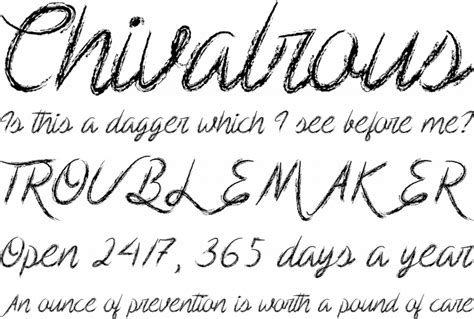 Chivalrous
Is this a dagger which I see before me?
TROUBLEMAKER
Open 24/7, 365 days a year
An ounce of prevention is worth a pound of care